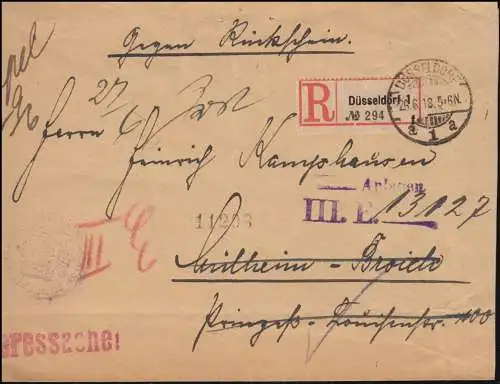 Gegen Rückschein.
27/6
R Düsseldorf 1
№ 294
DÜSSELDORF
26.6.18.5-6N.
a 1 a
Herrn
Heinrich Kamphausen
Anlagen
III. E. 13127
11298
III E
Mülheim-Broich
Prinzeß-Louisenstr. 100
eressache!